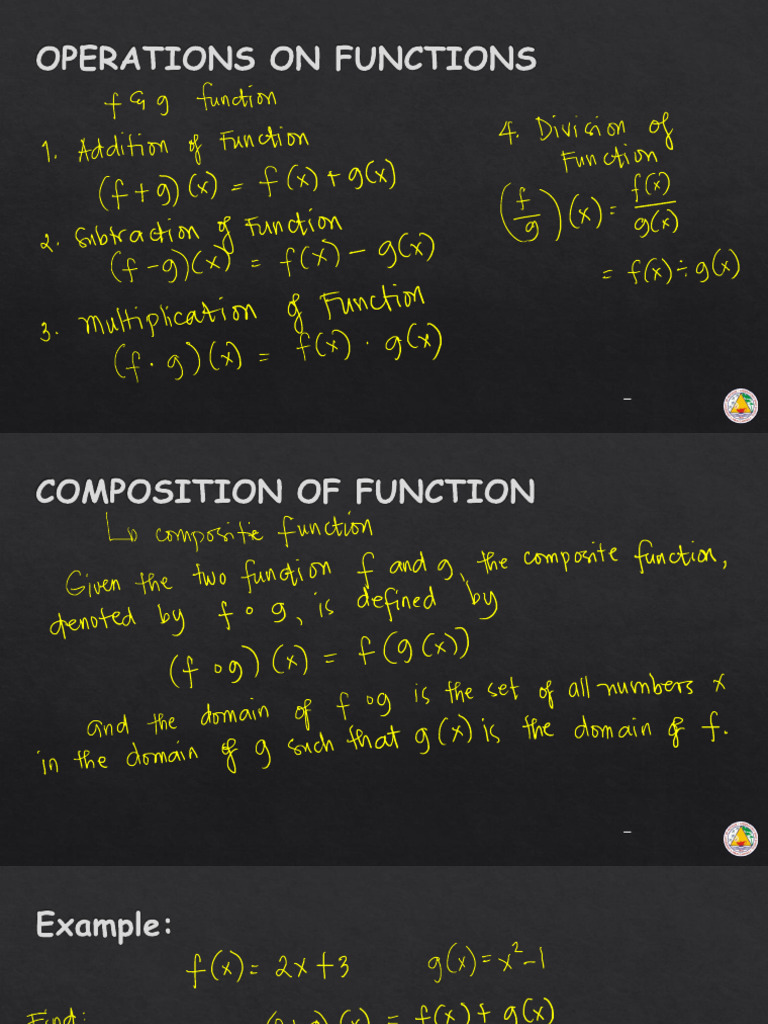 OPERATIONS ON FUNCTIONS
f & g function
1. Addition of Function
(f+g)(x) = f(x)+g(x)
2. Subtraction of Function
(f-g)(x) = f(x) - g(x)
3. Multiplication of Function
(f·g)(x) = f(x) · g(x)
4. Division of
Function
(f/g)(x) = f(x)/g(x)
= f(x) ÷ g(x)
COMPOSITION OF FUNCTION
↳ composite function
Given the two function f and g, the composite function,
denoted by f∘g, is defined by
(f∘g)(x) = f(g(x))
and the domain of f∘g is the set of all numbers x
in the domain of g such that g(x) is the domain of f.
Example:
f(x) = 2x+3 g(x) = x²-1
Find: (f+g)(x) = f(x)+g(x)